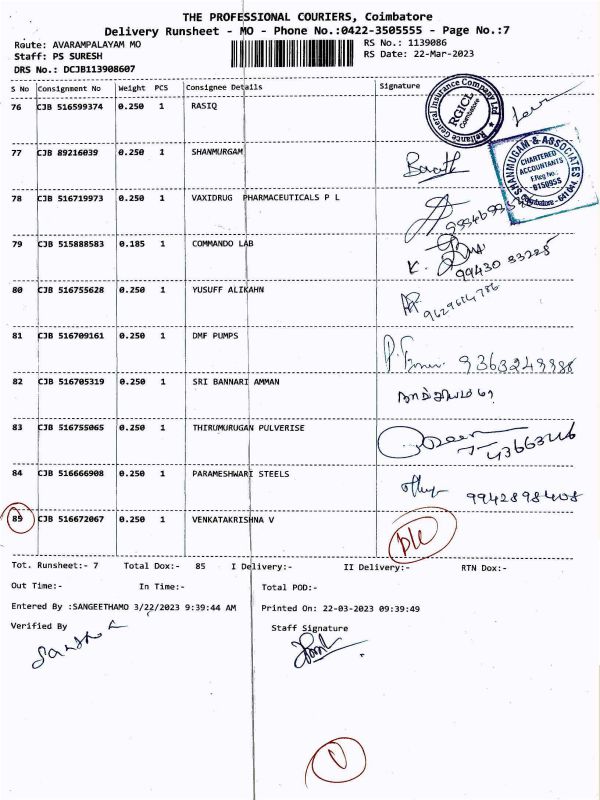 THE PROFESSIONAL COURIERS, Coimbatore
Delivery Runsheet - MO - Phone No.:0422-3505555 - Page No.:7
Route: AVARAMPALAYAM MO
RS No.: 1139086
Staff: PS SURESH
RS Date: 22-Mar-2023
DRS No.: DCJB113908607
S No Consignment No Weight PCS Consignee Details Signature
76 CJB 516599374 0.250 1 RASIQ
Reliance General Insurance Company Ltd
RGICL
Coimbatore
77 CJB 89216039 0.250 1 SHANMURGAM
SHANMUGAM & ASSOCIATES
CHARTERED
ACCOUNTANTS
F.Reg No.:
015095S
Coimbatore - 641 044.
78 CJB 516719973 0.250 1 VAXIDRUG PHARMACEUTICALS P L
79 CJB 515888583 0.185 1 COMMANDO LAB
K.
80 CJB 516755628 0.250 1 YUSUFF ALIKAHN
81 CJB 516709161 0.250 1 DMF PUMPS
82 CJB 516705319 0.250 1 SRI BANNARI AMMAN
83 CJB 516755065 0.250 1 THIRUMURUGAN PULVERISE
84 CJB 516666908 0.250 1 PARAMESHWARI STEELS
9942898408
85 CJB 516672067 0.250 1 VENKATAKRISHNA V
D/C
Tot. Runsheet:- 7 Total Dox:- 85 I Delivery:- II Delivery:- RTN Dox:-
Out Time:- In Time:- Total POD:-
Entered By :SANGEETHAMO 3/22/2023 9:39:44 AM Printed On: 22-03-2023 09:39:49
Verified By Staff Signature